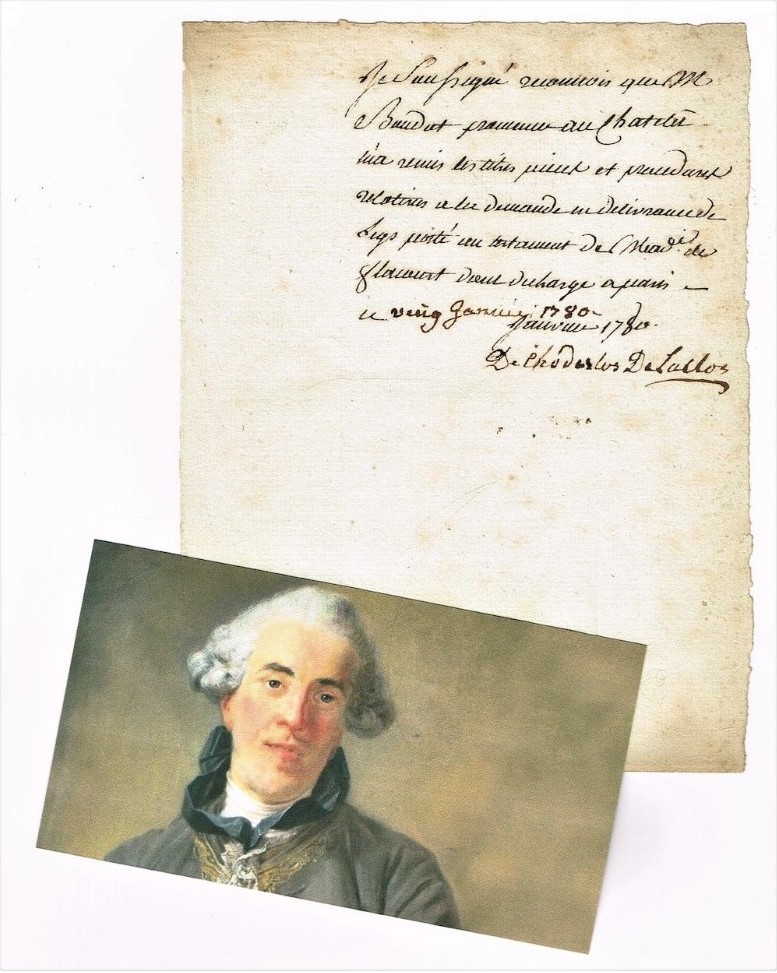 Je Soussigné reconnois que M
Baudot procureur au Chatelet
m'a remis les titres pieces et procedures
relatives a la demande en delivrance de
Legs porté au testament de Mad.e de
flacourt dont decharge a paris
ce veing Janvier 1780
Janvier 1780.
De Choderlos De Laclos